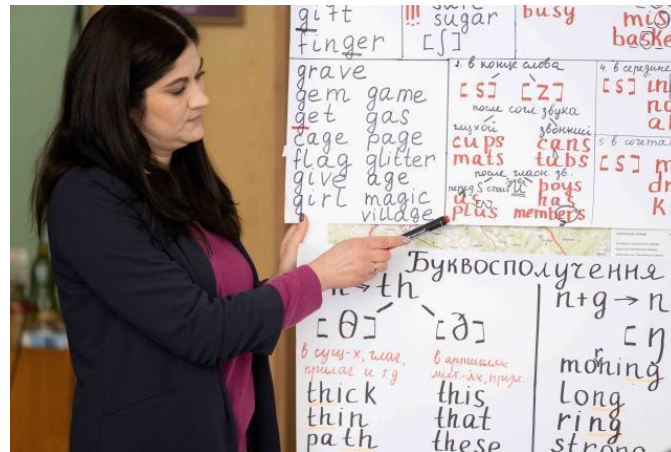 gift
finger
!!!
sugar
[ʃ]
busy
mis
baske
grave
gem game
get gas
cage page
flag glitter
give age
girl magic
village
2. в конце слова
[s] [z]
после согл звука
глухой звонкий
cups cans
mats tubs
после гласн зв.
boys
us has
plus members
4. в середине
[s]
5. в сочета
[s] m
d
k
Буквосполучення
→ th
[θ] [ð]
в сущ-х, глаг,
прилаг. и т д
thick
thin
path
в артиклях
мест.-ях,
this
that
these
n+g → n
[ŋ
morning
long
ring
strong